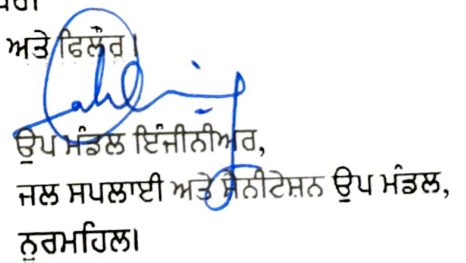 ਅਤੇ ਫਿਲੌਰ।
ਉਪ ਮੰਡਲ ਇੰਜੀਨੀਅਰ,
ਜਲ ਸਪਲਾਈ ਅਤੇ ਸੈਨੀਟੇਸ਼ਨ ਉਪ ਮੰਡਲ,
ਨੂਰਮਹਿਲ।